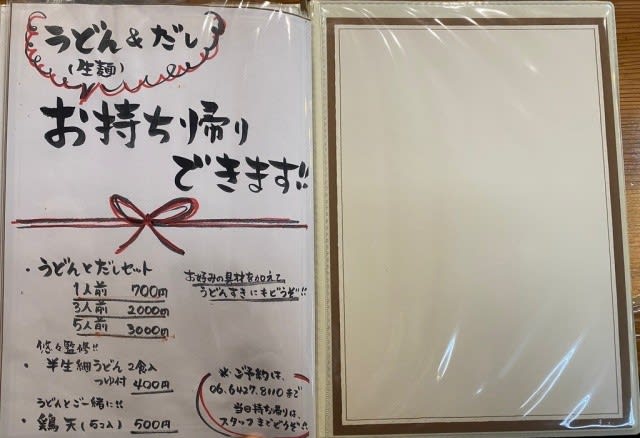 うどん&だし
(生麺)
お持ち帰り
できます!!
・うどんとだしセット
1人前 700円
3人前 2000円
5人前 3000円
お好みの具材を加えて、
うどんすきにもどうぞ!!
悠々監修!!
・半生細うどん2食入
つゆ付 400円
うどんとご一緒に!!
・鶏天(5コ入) 500円
※ご予約は、
06.6427.8110まで
当日持ち帰りは、
スタッフまでどうぞ!!